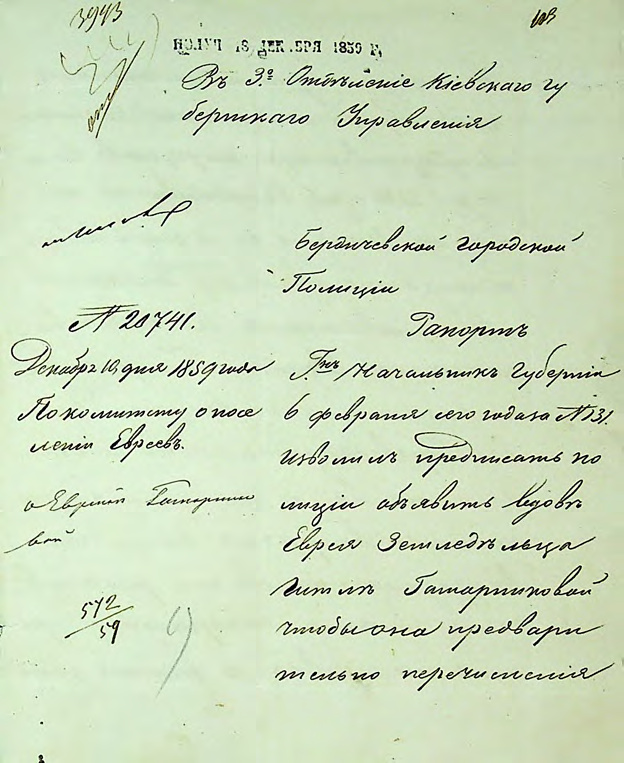 3943
ПОЛУЧ 18 ДЕКАБРЯ 1859 Г.
Въ 3е. Отдѣленіе Кіевскаго гу
бернскаго Управленія
Бердичевской городской
Полиціи
Рапортъ
№ 20741.
Декабря 10 дня 1859 года
По комитету о посе
леніи Евреевъ.
о Еврейкѣ Гатарнико
вой
572/59
Гнъ Начальникъ Губерніи
6 февраля сего года за № 131.
изволилъ предписать по
лиціи объявить вдовѣ
Еврея Земледѣльца
Гитлѣ Гатарниковой
чтобы она предвари
тельно перечисленія